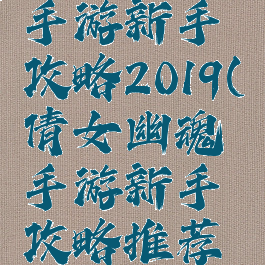 手游新手
攻略2019(
倩女幽魂
手游新手
攻略推荐